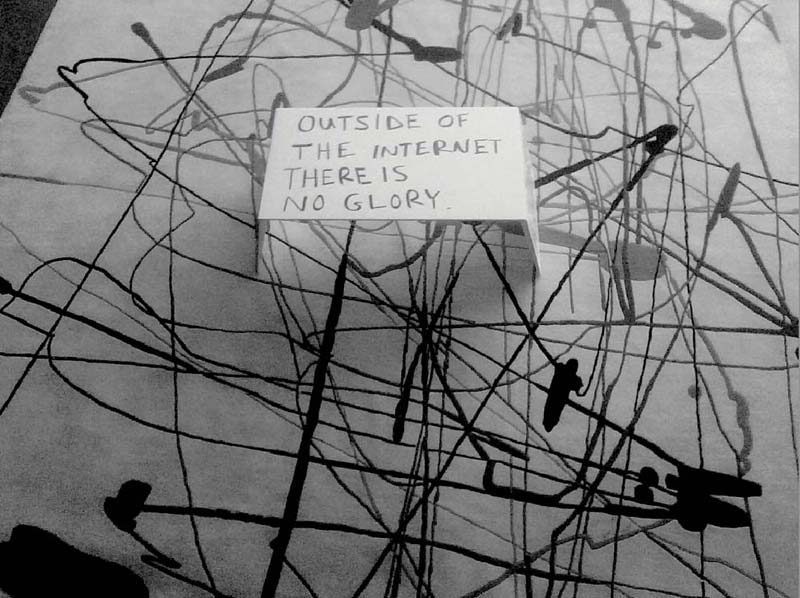 OUTSIDE OF
THE INTERNET
THERE IS
NO GLORY.